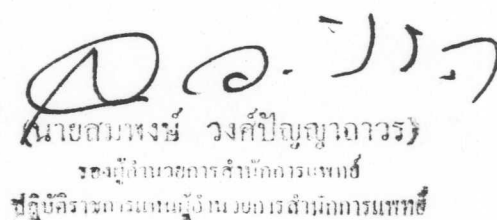 (นายสมพงษ์ วงศ์ปัญญาถาวร)
รองผู้อำนวยการสำนักการแพทย์
ปฏิบัติราชการแทนผู้อำนวยการสำนักการแพทย์